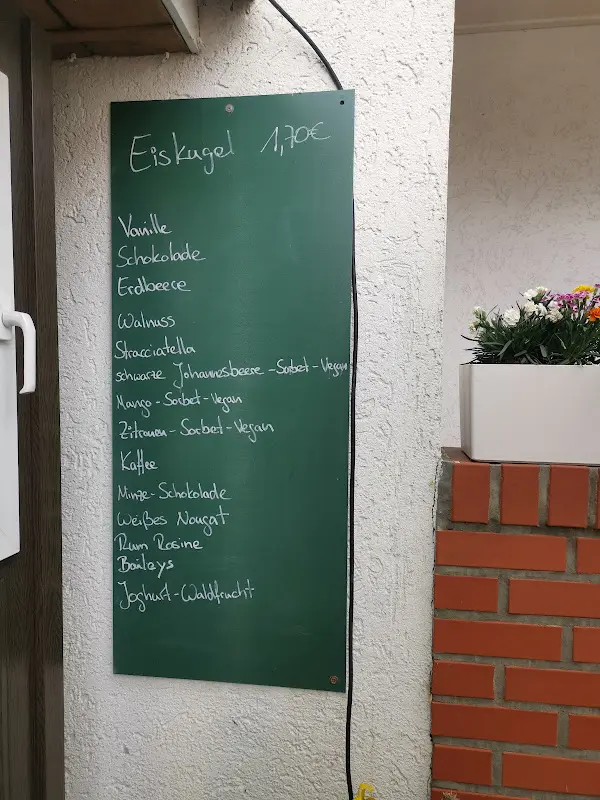 Eiskugel 1,70€
Vanille
Schokolade
Erdbeere
Walnuss
Stracciatella
schwarze Johannesbeere - Sorbet - Vegan
Mango - Sorbet - Vegan
Zitronen - Sorbet - Vegan
Kaffee
Minze - Schokolade
Weißes Nougat
Rum Rosine
Baileys
Joghurt - Waldfrucht